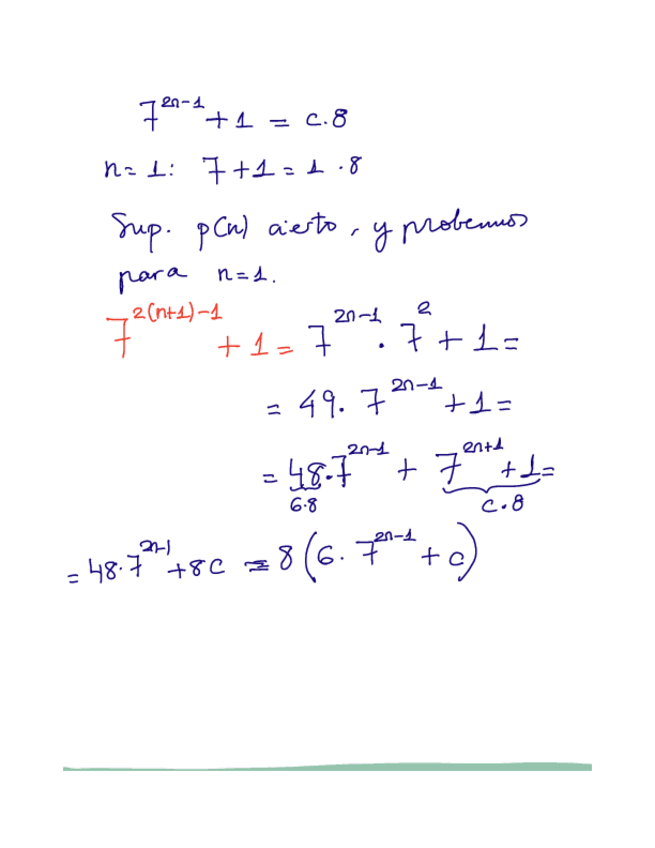 7^{2n-1} + 1 = c.8
n=1: 7+1=1·8
Sup. p(n) cierto, y probemos
para n=1.
7^{2(n+1)-1} + 1 = 7^{2n-1} · 7^2 + 1 =
= 49. 7^{2n-1} + 1 =
= 48·7^{2n-1} + 7^{2n+1} + 1 =
6·8 c·8
= 48·7^{2n-1} + 8c = 8(6. 7^{2n-1} + c)